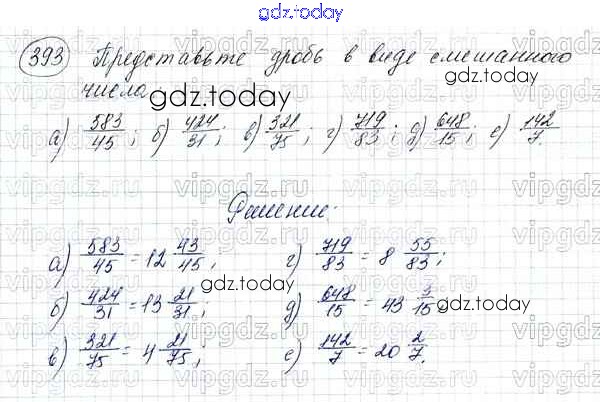 gdz.today
393 Представьте дробь в виде смешанного
числа
gdz.today
а) 583/45; б) 424/31; в) 321/75; г) 719/83; д) 648/15; е) 142/7.
Решение.
а) 583/45 = 12 43/45; г) 719/83 = 8 55/83;
gdz.today
б) 424/31 = 13 21/31; д) 648/15 = 43 3/15
gdz.today
в) 321/75 = 4 21/75; е) 142/7 = 20 2/7.